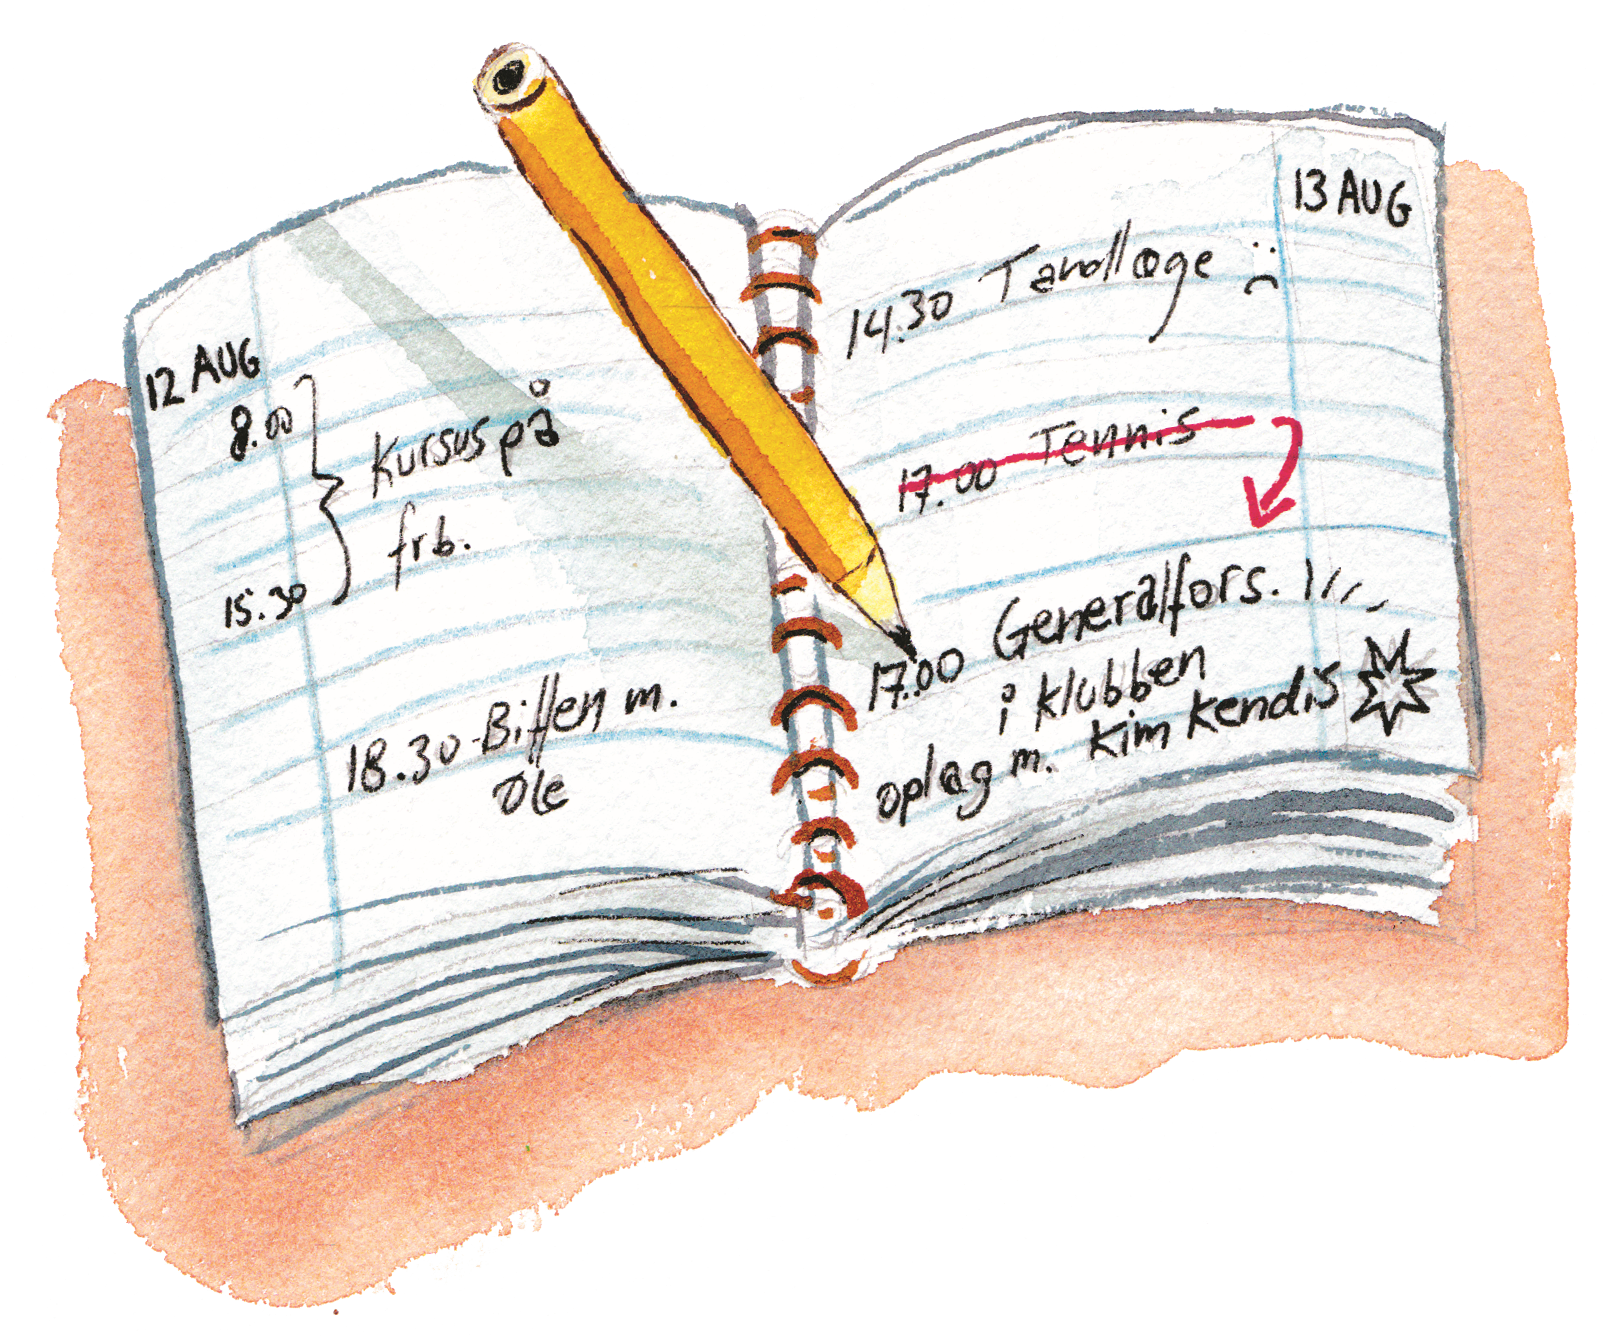 12 AUG
8.00
Kursus på
frb.
15.30
18.30 Biffen m.
Ole
13 AUG
14.30 Tandlæge
17.00 Tennis
17.00 Generalfors.
i klubben
oplæg m. Kim Kendis